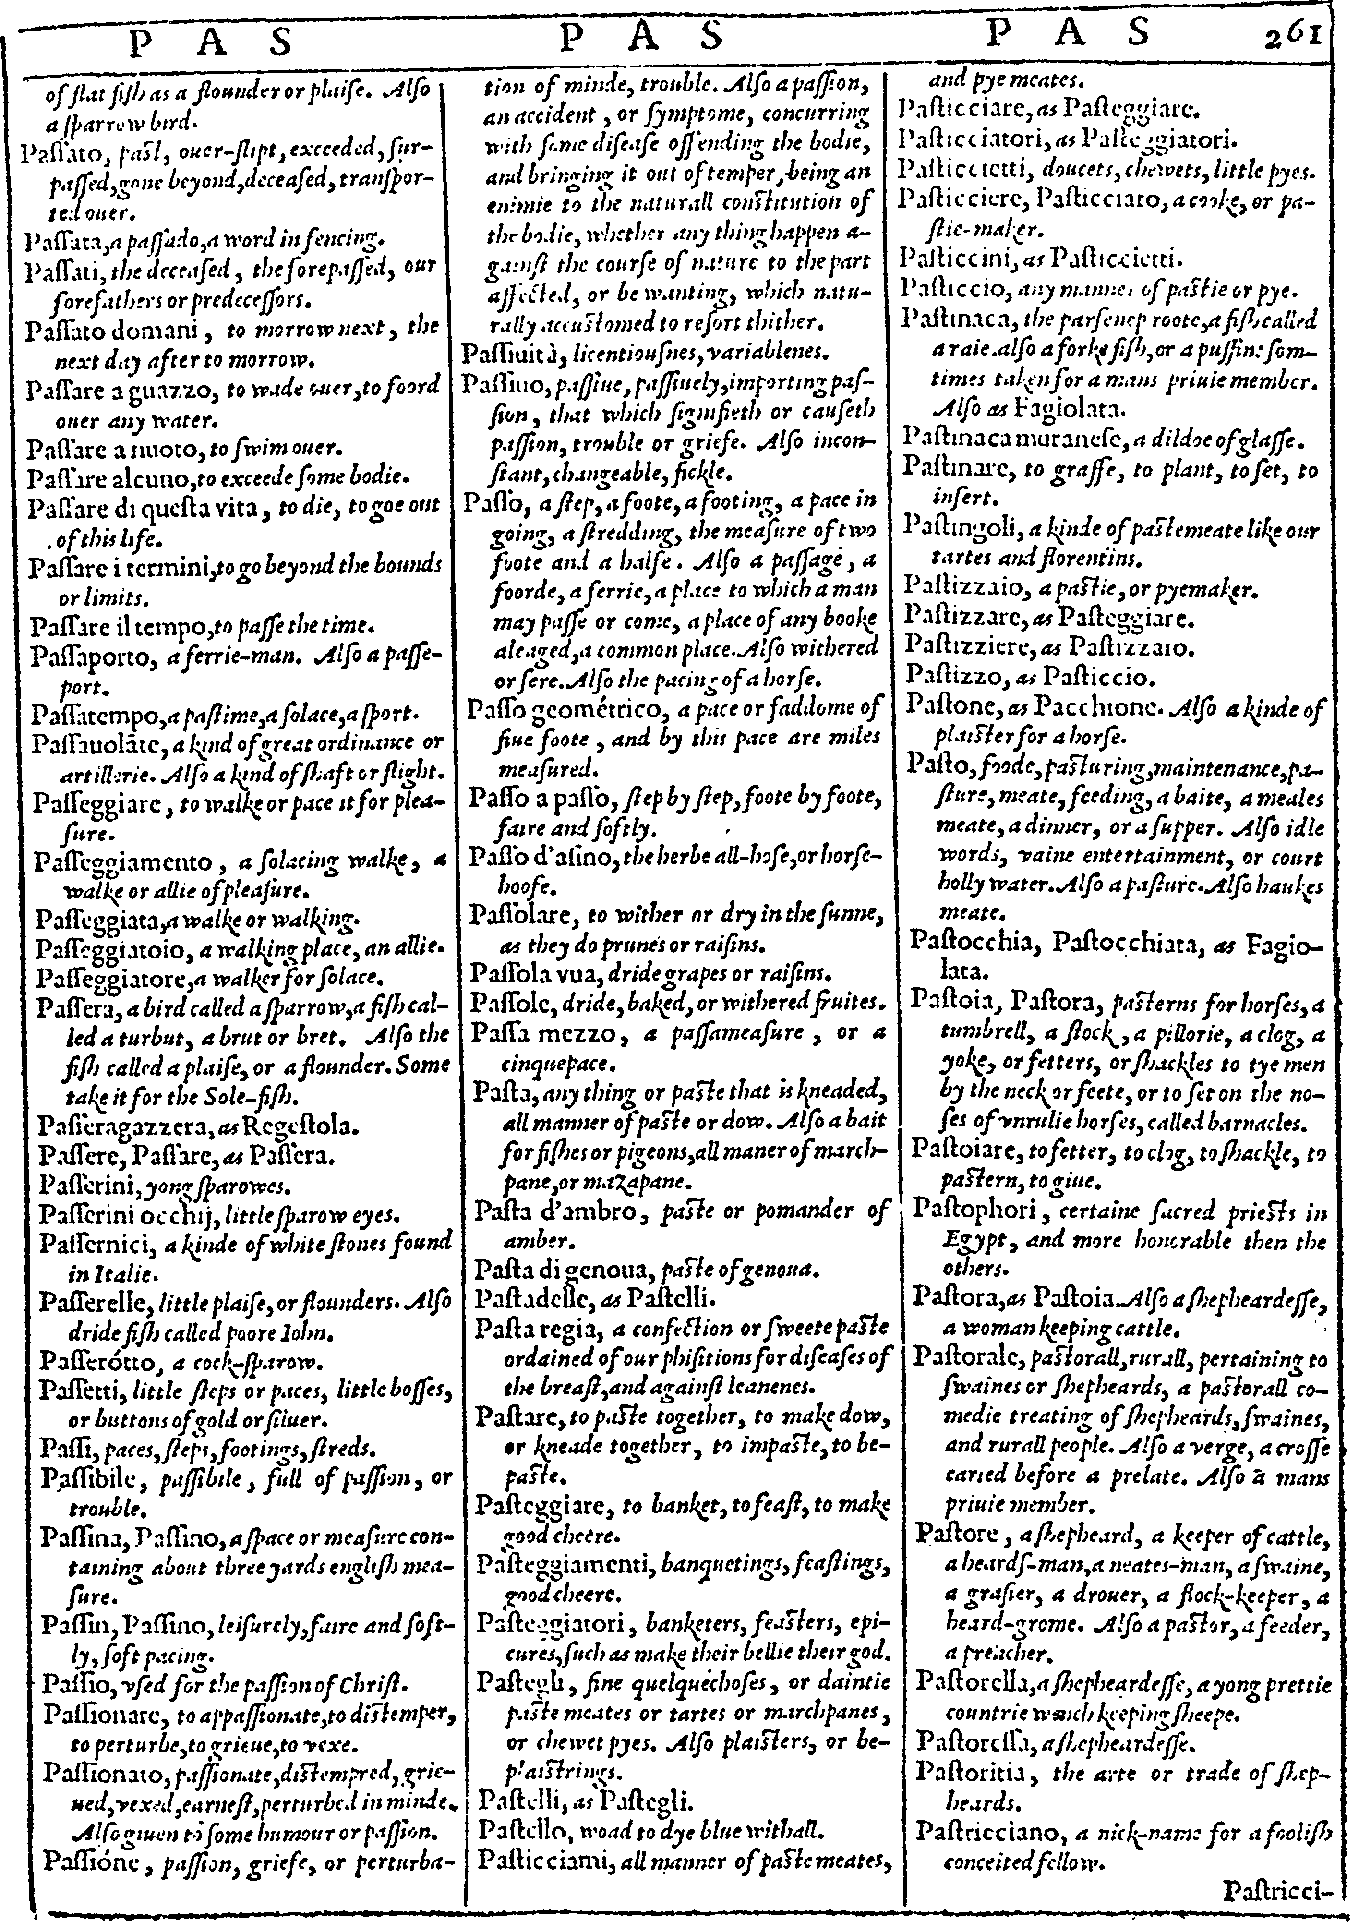 P A S
P A S
P A S
261
of flat fiſh as a flounder or plaiſe. Alſo
a ſparrow bird.
Paſſato, paſt, ouer-ſlipt, exceeded, ſur-
paſſed, gone beyond, deceaſed, tranſpor-
ted ouer.
Paſſata, a paſſado, a word in fencing.
Paſſati, the deceaſed, the forepaſſed, our
forefathers or predeceſſors.
Paſſato domani, to morrow next, the
next day after to morrow.
Paſſare a guazzo, to wade ouer, to foord
ouer any water.
Paſſare a nuoto, to ſwim ouer.
Paſſare alcuno, to exceede ſome bodie.
Paſſare di queſta vita, to die, to goe out
of this life.
Paſſare i termini, to go beyond the bounds
or limits.
Paſſare il tempo, to paſſe the time.
Paſſaporto, a ferrie-man. Alſo a paſſe-
port.
Paſſatempo, a paſtime, a ſolace, a ſport.
Paſſauolãte, a kind of great ordinance or
artillerie. Alſo a kind of ſhaft or flight.
Paſſeggiare, to walke or pace it for plea-
ſure.
Paſſeggiamento, a ſolacing walke, a
walke or allie of pleaſure.
Paſſeggiata, a walke or walking.
Paſſeggiatoio, a walking place, an allie.
Paſſeggiatore, a walker for ſolace.
Paſſera, a bird called a ſparrow, a fiſh cal-
led a turbut, a brut or bret. Alſo the
fiſh called a plaiſe, or a flounder. Some
take it for the Sole-fiſh.
Paſſeragazzera, as Regeſtola.
Paſſere, Paſſare, as Paſſera.
Paſſerini, yong ſparowes.
Paſſerini occhij, little ſparow eyes.
Paſſernici, a kinde of white ſtones found
in Italie.
Paſſerelle, little plaiſe, or flounders. Alſo
dride fiſh called poore Iohn.
Paſſerótto, a cock-ſparow.
Paſſetti, little ſteps or paces, little boſſes,
or buttons of gold or ſiluer.
Paſſi, paces, ſteps, footings, ſtreds.
Paſſibile, paſſibile, full of paſſion, or
trouble.
Paſſina, Paſſino, a ſpace or meaſure con-
taining about three yards engliſh mea-
ſure.
Paſſin, Paſſino, leiſurely, faire and ſoft-
ly, ſoft pacing.
Paſſio, vſed for the paſſion of Chriſt.
Paſſionare, to appaſſionate, to diſtemper,
to perturbe, to grieue, to vexe.
Paſſionato, paſſionate, diſtempred, grie-
ued, vexed, earneſt, perturbed in minde.
Alſo giuen to ſome humour or paſſion.
Paſſióne, paſſion, griefe, or perturba-
tion of minde, trouble. Alſo a paſſion,
an accident, or ſymptome, concurring
with ſome diſeaſe offending the bodie,
and bringing it out of temper, being an
enimie to the naturall conſtitution of
the bodie, whether any thing happen a-
gainſt the courſe of nature to the part
affected, or be wanting, which natu-
rally accuſtomed to reſort thither.
Paſſiuità, licentiouſnes, variablenes.
Paſſiuo, paſſiue, paſſiuely, importing paſ-
ſion, that which ſignifieth or cauſeth
paſſion, trouble or griefe. Alſo incon-
ſtant, changeable, fickle.
Paſſo, a ſtep, a foote, a footing, a pace in
going, a ſtredding, the meaſure of two
foote and a halfe. Alſo a paſſage, a
foorde, a ferrie, a place to which a man
may paſſe or come, a place of any booke
aleaged, a common place. Alſo withered
or ſere. Alſo the pacing of a horſe.
Paſſo geométrico, a pace or faddome of
fiue foote, and by this pace are miles
meaſured.
Paſſo a paſſo, ſtep by ſtep, foote by foote,
faire and ſoftly.
Paſſo d'aſino, the herbe all-hoſe, or horſe-
hoofe.
Paſſolare, to wither or dry in the ſunne,
as they do prunes or raiſins.
Paſſola vua, dride grapes or raiſins.
Paſſole, dride, baked, or withered fruites.
Paſſa mezzo, a paſſameaſure, or a
cinquepace.
Paſta, any thing or paſte that is kneaded,
all manner of paſte or dow. Alſo a bait
for fiſhes or pigeons, all maner of march-
pane, or mazapane.
Paſta d'ambro, paſte or pomander of
amber.
Paſta di genoua, paſte of genoua.
Paſtadelle, as Paſtelli.
Paſta regia, a confection or ſweete paſte
ordained of our phiſitions for diſeaſes of
the breaſt, and againſt leanenes.
Paſtare, to paſte together, to make dow,
or kneade together, to impaſte, to be-
paſte.
Paſteggiare, to banket, to feaſt, to make
good cheere.
Paſteggiamenti, banquetings, feaſtings,
good cheere.
Paſteggiatori, banketers, feaſters, epi-
cures, ſuch as make their bellie their god.
Paſtegli, fine quelquechoſes, or daintie
paſte meates or tartes or marchpanes,
or chewet pyes. Alſo plaiſters, or be-
plaiſtrings.
Paſtelli, as Paſtegli.
Paſtello, woad to dye blue withall.
Paſticciami, all manner of paſte meates,
and pye meates.
Paſticciare, as Paſteggiare.
Paſticciatori, as Paſteggiatori.
Paſticcietti, doucets, chewets, little pyes.
Paſticciere, Paſticciato, a cooke, or pa-
ſtie-maker.
Paſticcini, as Paſticcietti.
Paſticcio, any manner of paſtie or pye.
Paſtinaca, the parſenep roote, a fiſh called
a raie. alſo a forke fiſh, or a puffin: ſom-
times taken for a mans priuie member.
Alſo as Fagiolata.
Paſtinaca muraneſe, a dildoe of glaſſe.
Paſtinare, to graffe, to plant, to ſet, to
inſert.
Paſtingoli, a kinde of paſtemeate like our
tartes and florentins.
Paſtizzaio, a paſtie, or pyemaker.
Paſtizzare, as Paſteggiare.
Paſtizziere, as Paſtizzaio.
Paſtizzo, as Paſticcio.
Paſtone, as Pacchione. Alſo a kinde of
plaiſter for a horſe.
Paſto, foode, paſturing, maintenance, pa-
ſture, meate, feeding, a baite, a meales
meate, a dinner, or a ſupper. Alſo idle
words, vaine entertainment, or court
holly water. Alſo a paſture. Alſo haukes
meate.
Paſtocchia, Paſtocchiata, as Fagio-
lata.
Paſtoia, Paſtora, paſterns for horſes, a
tumbrell, a ſtock, a pillorie, a clog, a
yoke, or fetters, or ſhackles to tye men
by the neck or feete, or to ſet on the no-
ſes of vnrulie horſes, called barnacles.
Paſtoiare, to fetter, to clog, to ſhackle, to
paſtern, to giue.
Paſtophori, certaine ſacred prieſts in
Egypt, and more honorable then the
others.
Paſtora, as Paſtoia. Alſo a ſhepheardeſſe,
a woman keeping cattle.
Paſtorale, paſtorall, rurall, pertaining to
ſwaines or ſhepheards, a paſtorall co-
medie treating of ſhepheards, ſwaines,
and rurall people. Alſo a verge, a croſſe
caried before a prelate. Alſo a mans
priuie member.
Paſtore, a ſhepheard, a keeper of cattle,
a heardſ-man, a neates-man, a ſwaine,
a graſier, a drouer, a flock-keeper, a
heard-grome. Alſo a paſtor, a feeder,
a preacher.
Paſtorella, a ſhepheardeſſe, a yong prettie
countrie wench keeping ſheepe.
Paſtoreſſa, a ſhepheardeſſe.
Paſtoritia, the arte or trade of ſhep-
heards.
Paſtricciano, a nick-name for a fooliſh
conceited fellow.
Paſtricci-